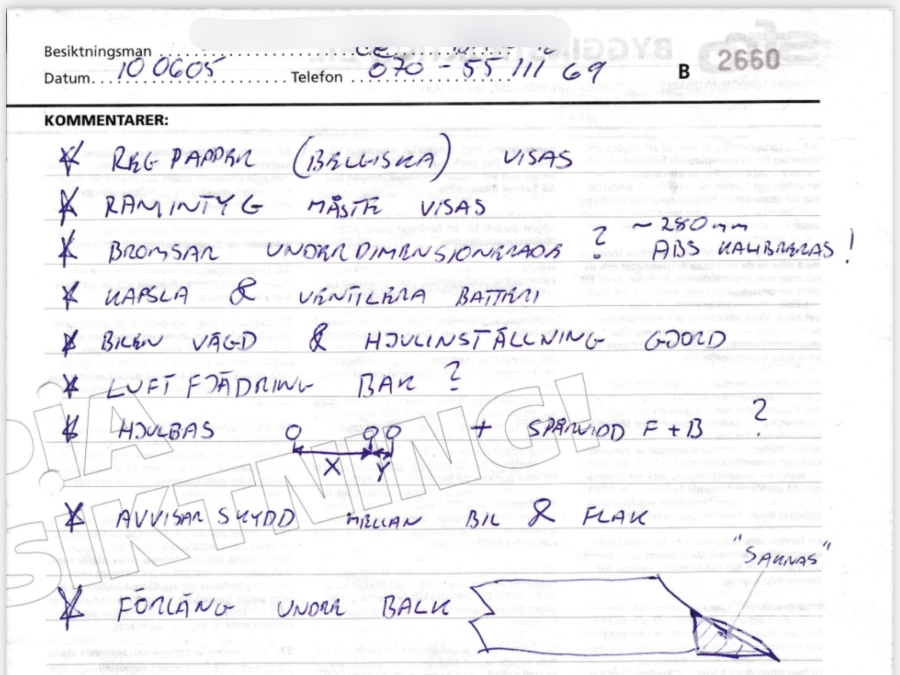 Besiktningsman
Datum 100605 Telefon 070-55 111 69 B 2660
KOMMENTARER:
* REG PAPPER (BELGISKA) VISAS
* RAMINTYG MÅSTE VISAS
* BROMSAR UNDERDIMENSIONERADE ? ~280mm
ABS KALIBRERAS!
* KAPSLA & VENTILERA BATTERI
* BILEN VÄGD & HJULINSTÄLLNING GJORD
* LUFTFJÄDRING BAK ?
* HJULBAS + SPÅRVIDD F+B ?
X Y
* AVVISAR SKYDD MELLAN BIL & FLAK
"SAKNAS"
* FÖRLÄNG UNDER BALK
PIA
SIKTNING!